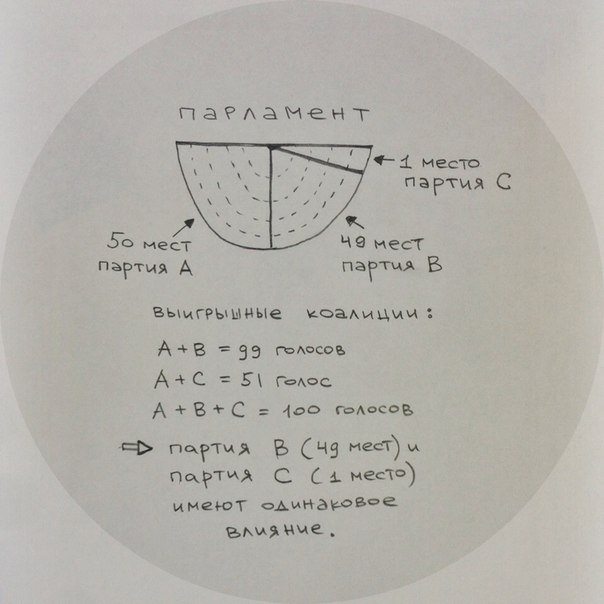 ПАРЛАМЕНТ
1 место
партия С
50 мест
партия А
49 мест
партия В
выигрышные коалиции:
А+В = 99 голосов
А+С = 51 голос
А+В+С = 100 голосов
⇒ партия В (49 мест) и
партия С (1 место)
имеют одинаковое
влияние.